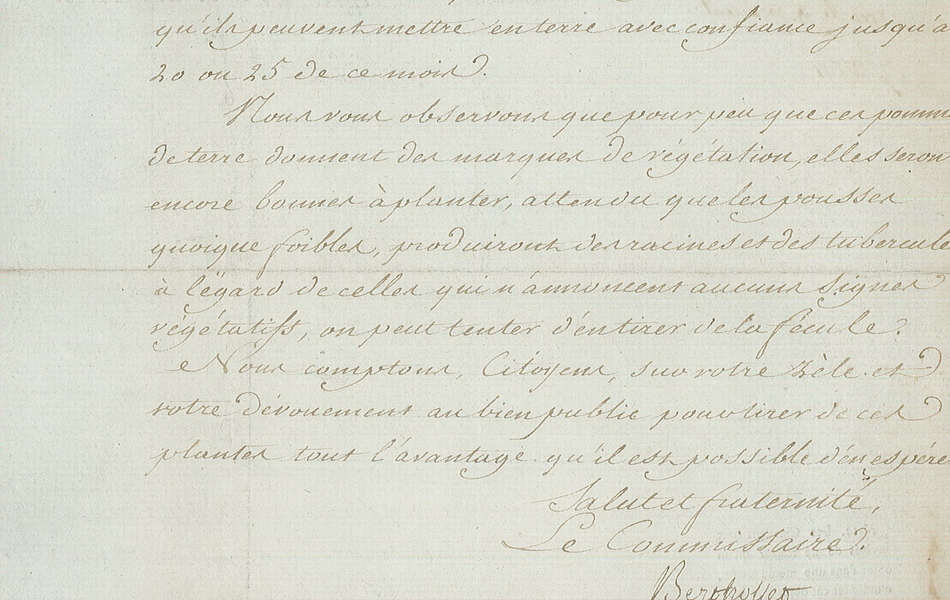 qu'ils peuvent mettre en terre avec confiance jusqu'à
20 ou 25 de ce mois.
Nous vous observons que pour peu que ces pomm
de terre donnent des marques de végétation, elles seron
encore bonnes à planter, attendu que les pousses
quoique foibles, produiront des racines et des tubercule
à l'égard de celles qui n'annoncent aucuns signes
végétatifs, on peut tenter d'en tirer de la fécule.
Nous comptons, Citoyens, sur votre zèle et
votre dévouement au bien public pour tirer de ces
plantes tout l'avantage qu'il est possible d'en espére
Salut et fraternité,
Le Commissaire.
Berthollet